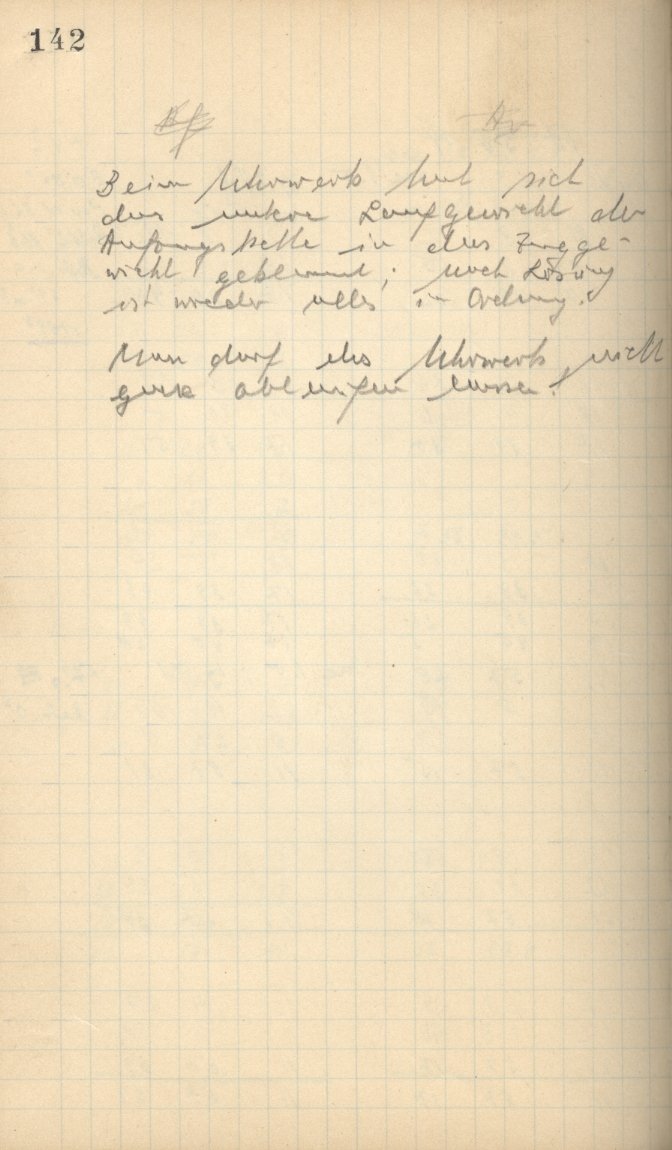 142
Beim Uhrwerk hat sich
das untere Laufgewicht der
in das Zugge-
wicht geklemmt; nach Lösung
ist wieder alles in Ordnung.
Man darf das Uhrwerk nicht
ganz ablaufen lassen!